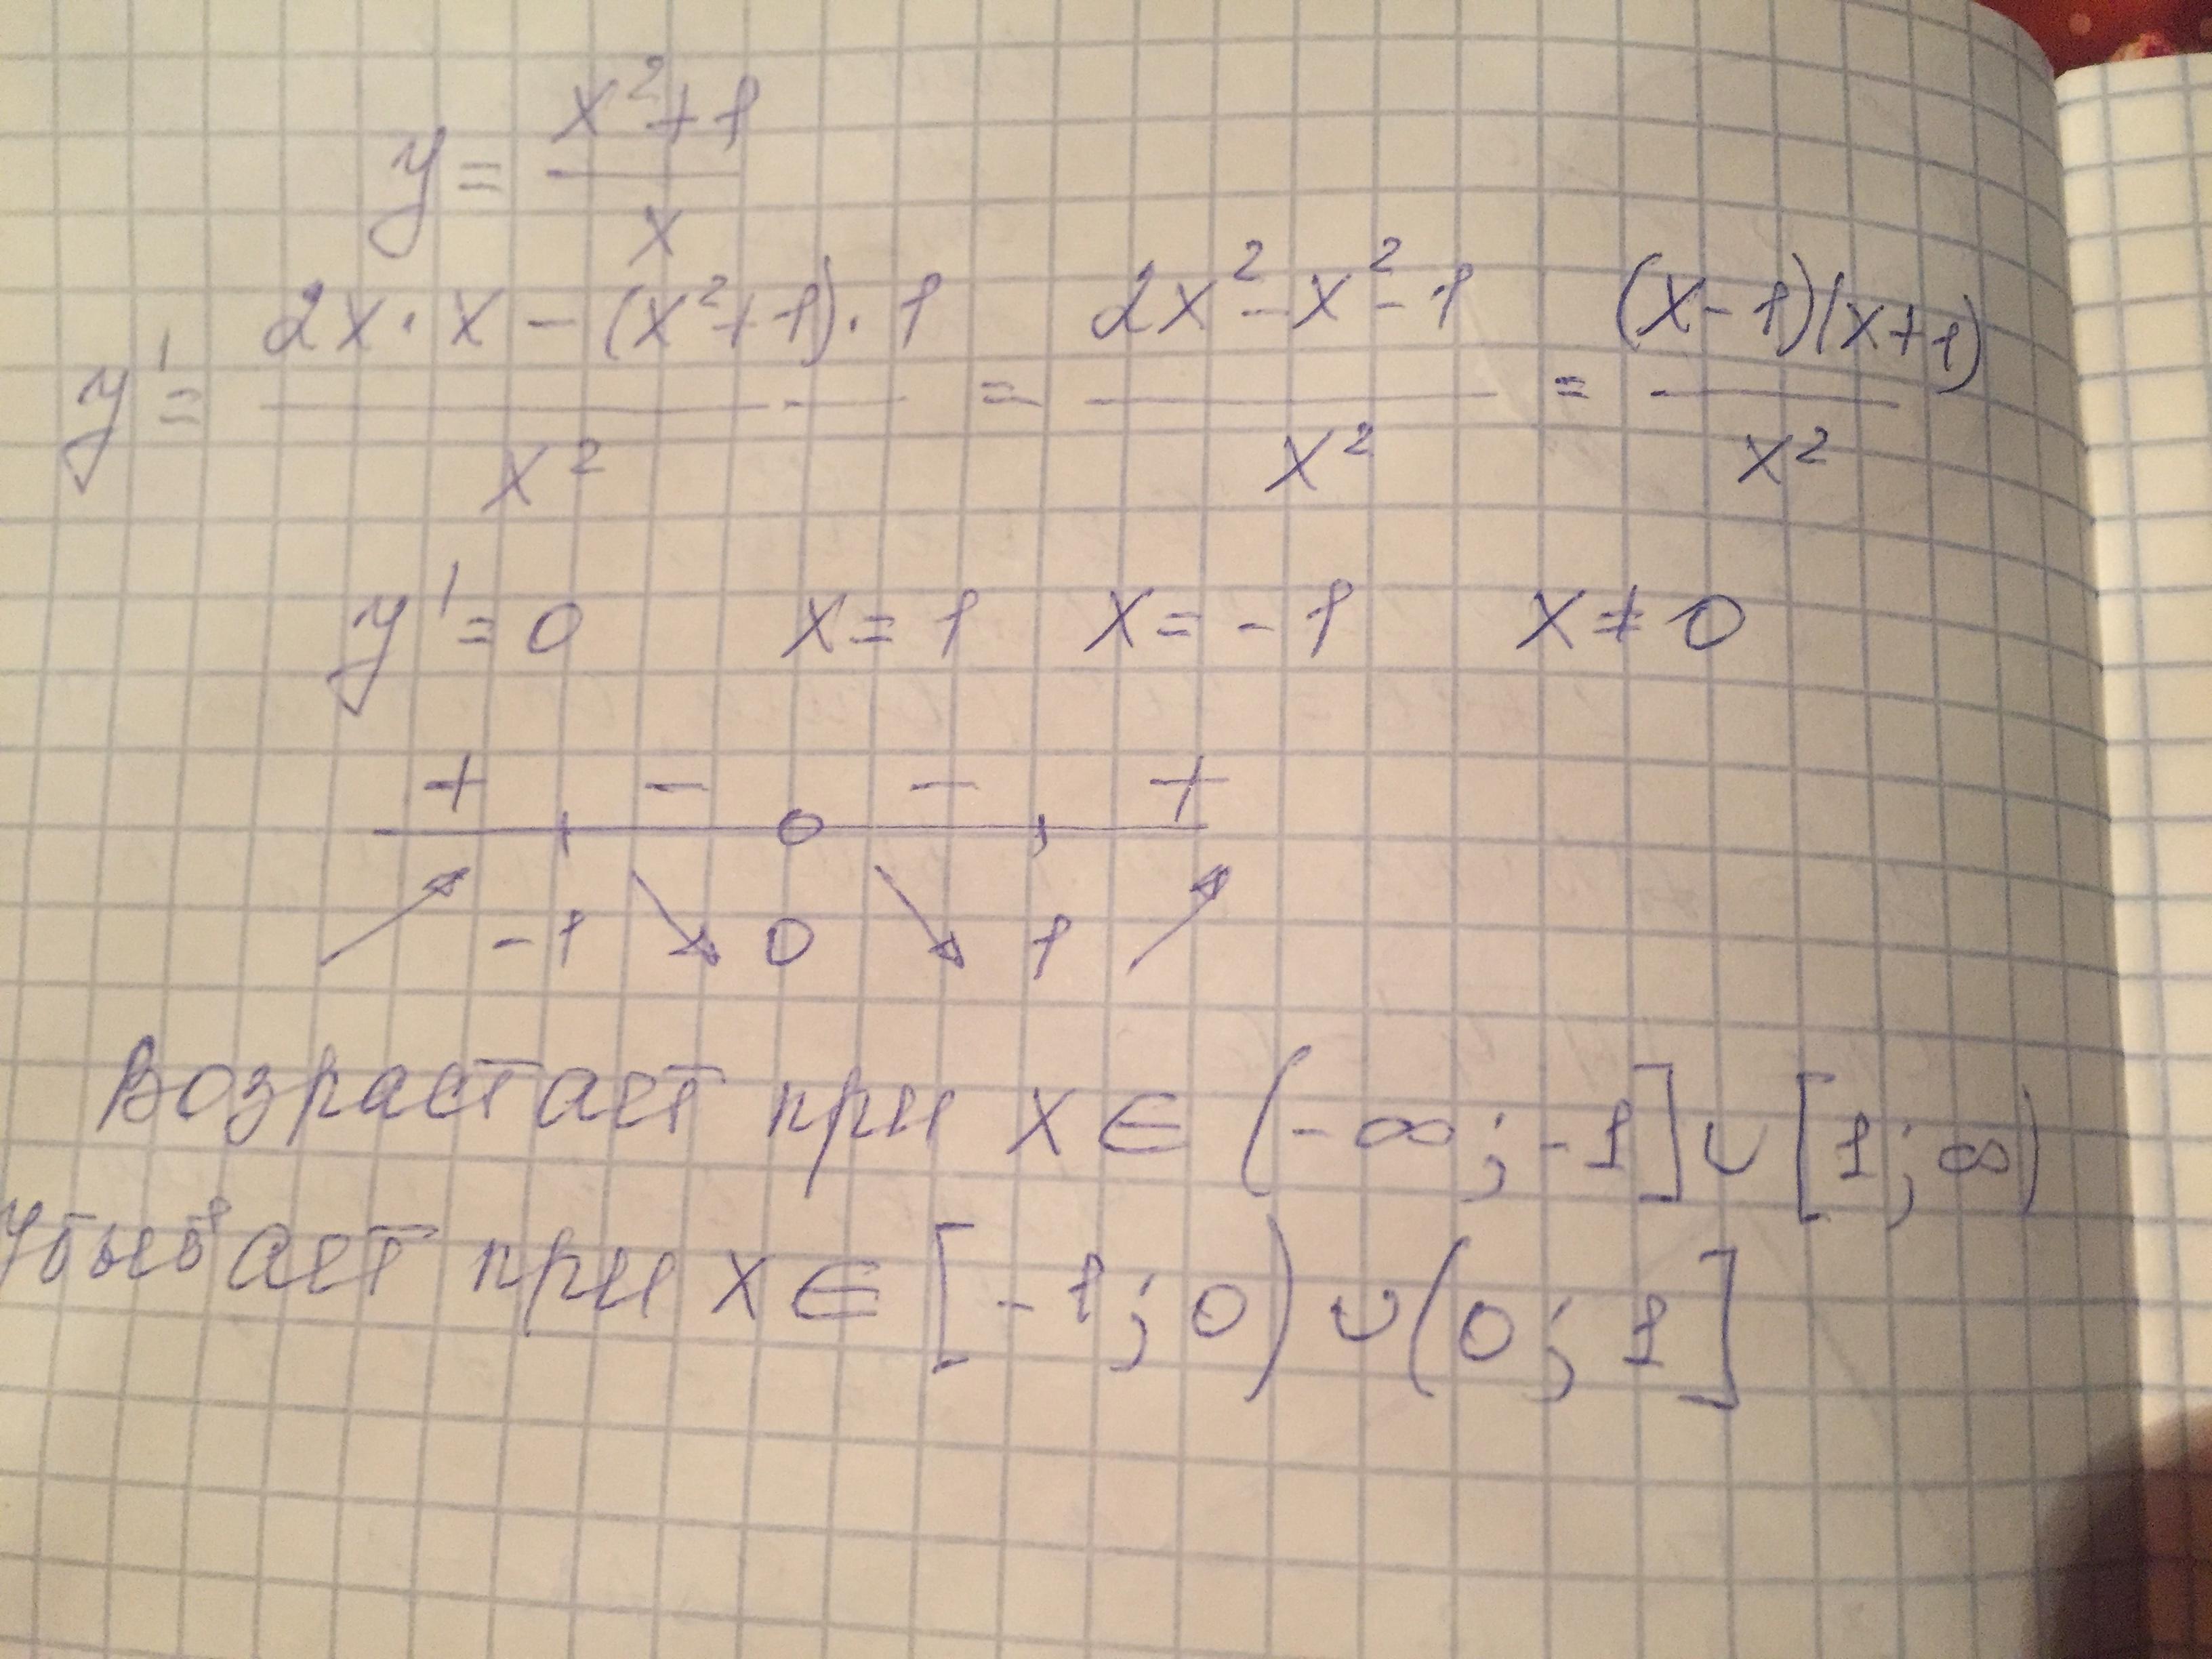 y = (x²+1)/x
y' = (2x·x − (x²+1)·1)/x² = (2x² − x² − 1)/x² = (x−1)(x+1)/x²
y' = 0 x = 1 x = −1 x ≠ 0
+ − − +
−1 0 1
Возрастает при x ∈ (−∞; −1] ∪ [1; ∞)
Убывает при x ∈ [−1; 0) ∪ (0; 1]